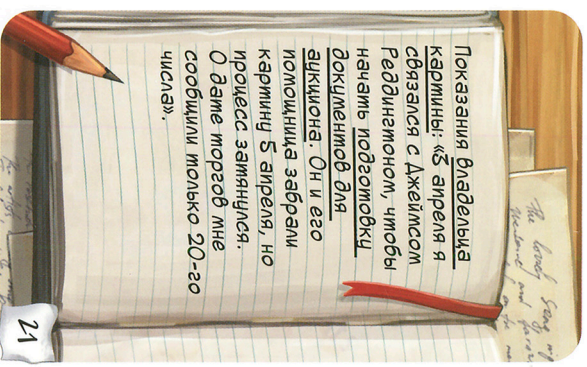 Показания владельца
картины: «3 апреля я
связался с Джеймсом
Реддингтоном, чтобы
начать подготовку
документов для
аукциона. Он и его
помощница забрали
картину 5 апреля, но
процесс затянулся.
О дате торгов мне
сообщили только 20-го
числа».
21
The lovely